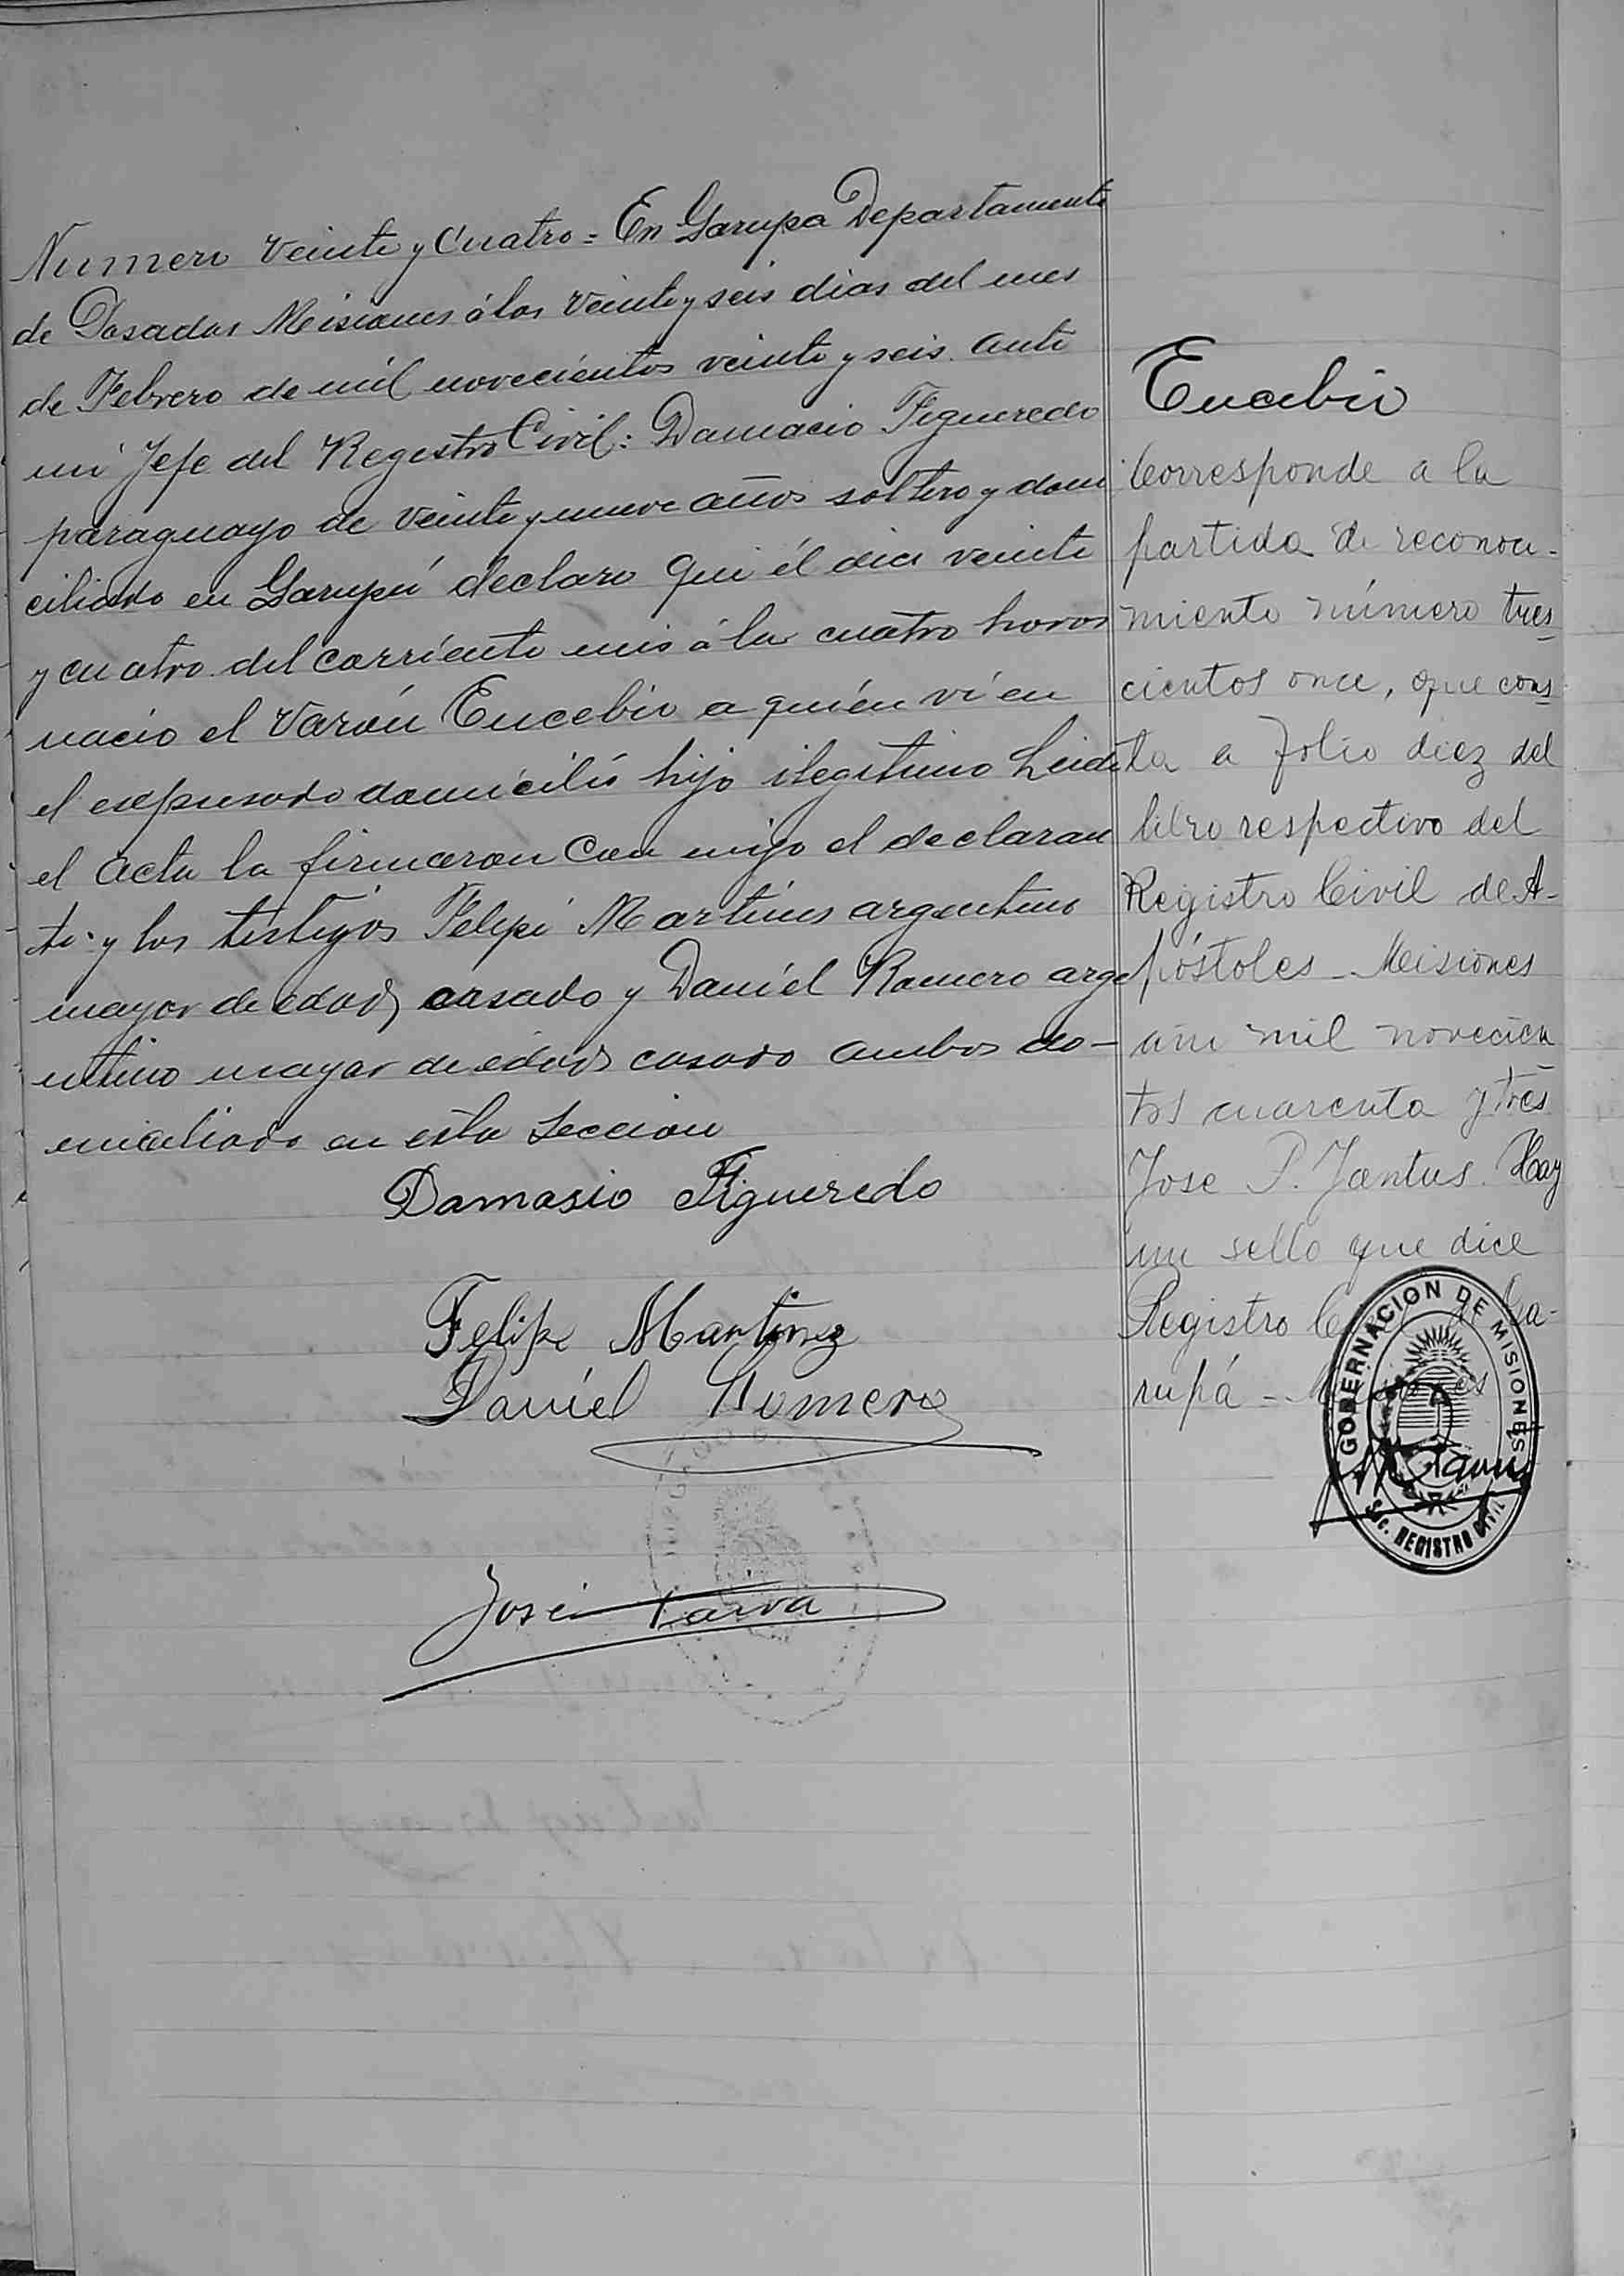 Numero veinte y Cuatro = En Garupa Departamento
de Posadas Misiones á los veinte y seis dias del mes
de Febrero de mil novecientos veinte y seis. ante
mi Jefe del Registro Civil: Damacio Figueredo
paraguayo de veinte y nueve años soltero y domi
ciliado en Garupá declaro que él dia veinte
y cuatro del corriente mes á la cuatro horas
nacio el Varón Eucebio a quién ví en
el expresado domicilio hijo ilegitimo Leida
el acta la firmaron con migo el declaran
te y los testigos Felipe Martines argentino
mayor de edad, casado y Daniél Romero arge
ntino mayor de edad casado ambos do-
miciliado en esta seccion
Damasio Figueredo
Felipe Martinez
Daniel Romero
José Paiva
Eucebio
Corresponde a la
partida de reconoci-
miento número tres
cientos once, que cons
ta a folio diez del
libro respectivo del
Registro Civil de A-
póstoles - Misiones
año mil novecien
tos cuarenta y tres
Jose P. Jantus. Hay
un sello que dice
Registro Ga-
rupá - Misiones
GOBERNACION DE MISIONES
REGISTRO CIVIL